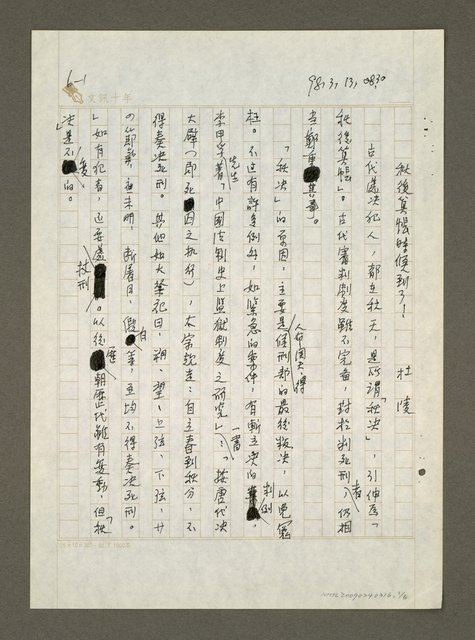 98, 3, 13, 0830
6-1
文訊十年
秋後算帳時候到了！
杜陵
古代處決犯人，都在秋天，是所謂「秋決」，引伸為「
秋後算帳」。古代審判制度雖不完備，對於判死刑者，仍相
當鄭重其事。
「秋決」的原因，主要是人命關天，得候刑部的最後叛決，以免冤
枉。不過有許多例外，如緊急的事件，有斬立決的判例。
李甲孚先生著「中國法制史上監獄制度之研究」一書：「按唐代決
大辟（即死囚之執行），太宗規定：自立春到秋分，不
得奏決死刑。其他如大祭祀日，朔、望、上弦、下弦、廿
四節氣，夜未明，斷屠日，假日等，並均不得奏決死刑。
」如有犯者，還要處杖刑。以後歷朝歷代雖有變動，但「秋
決」是不變的。
25×12=300
NMTL20090240316, 1/6